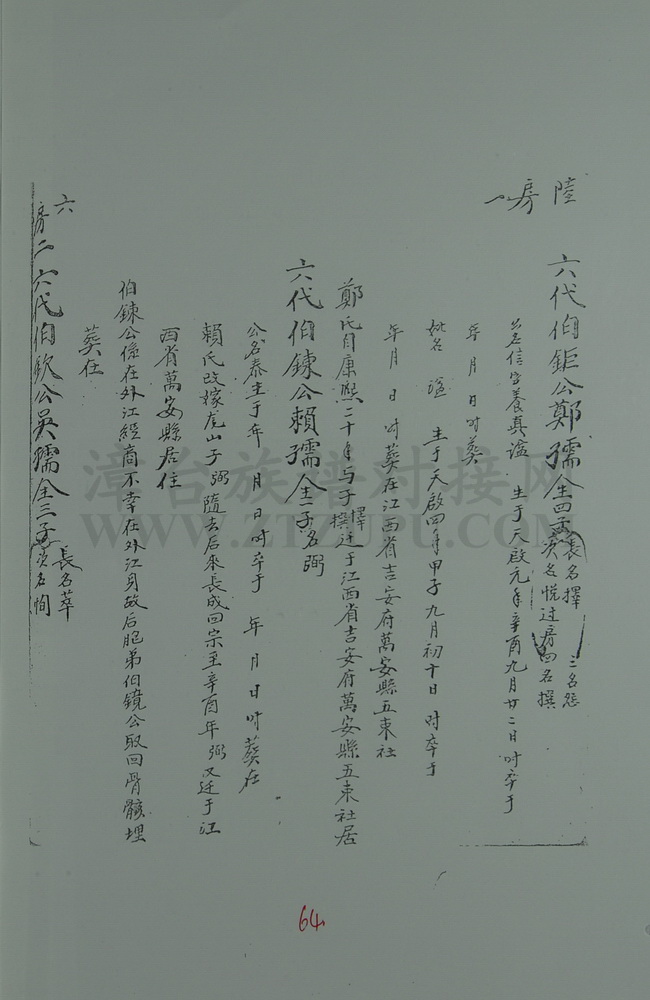 陸房一
六代伯鉅公鄭孺仝四子長名擇 三名恕
次名悅过房四名撰
公名信字養真謚 生于天啟元年辛酉九月廿二日 时卒于
年 月 日时葬
妣名 謚 生于天啟四年甲子九月初十日 时卒于
年 月 日 时葬在江西省吉安府萬安縣五東社
鄭氏自康熙二十年与子擇撰迁于江西省吉安府萬安縣五東社居
六代伯鍊公賴孺仝一子名弼
公名泰生于年 月 日时卒于 年 月 日时葬在
賴氏改嫁虎山子弼隨去后來長成回宗至辛酉年弼又迁于江
西省萬安縣居住
伯鍊公係在外江經商不幸在外江身故后胞弟伯鏡公取回骨骸埋
葬在
六房二六代伯欽公吳孺仝三子長名萃
次名恂
64
漳台族谱对接网
WWW.ZTZUPU.COM